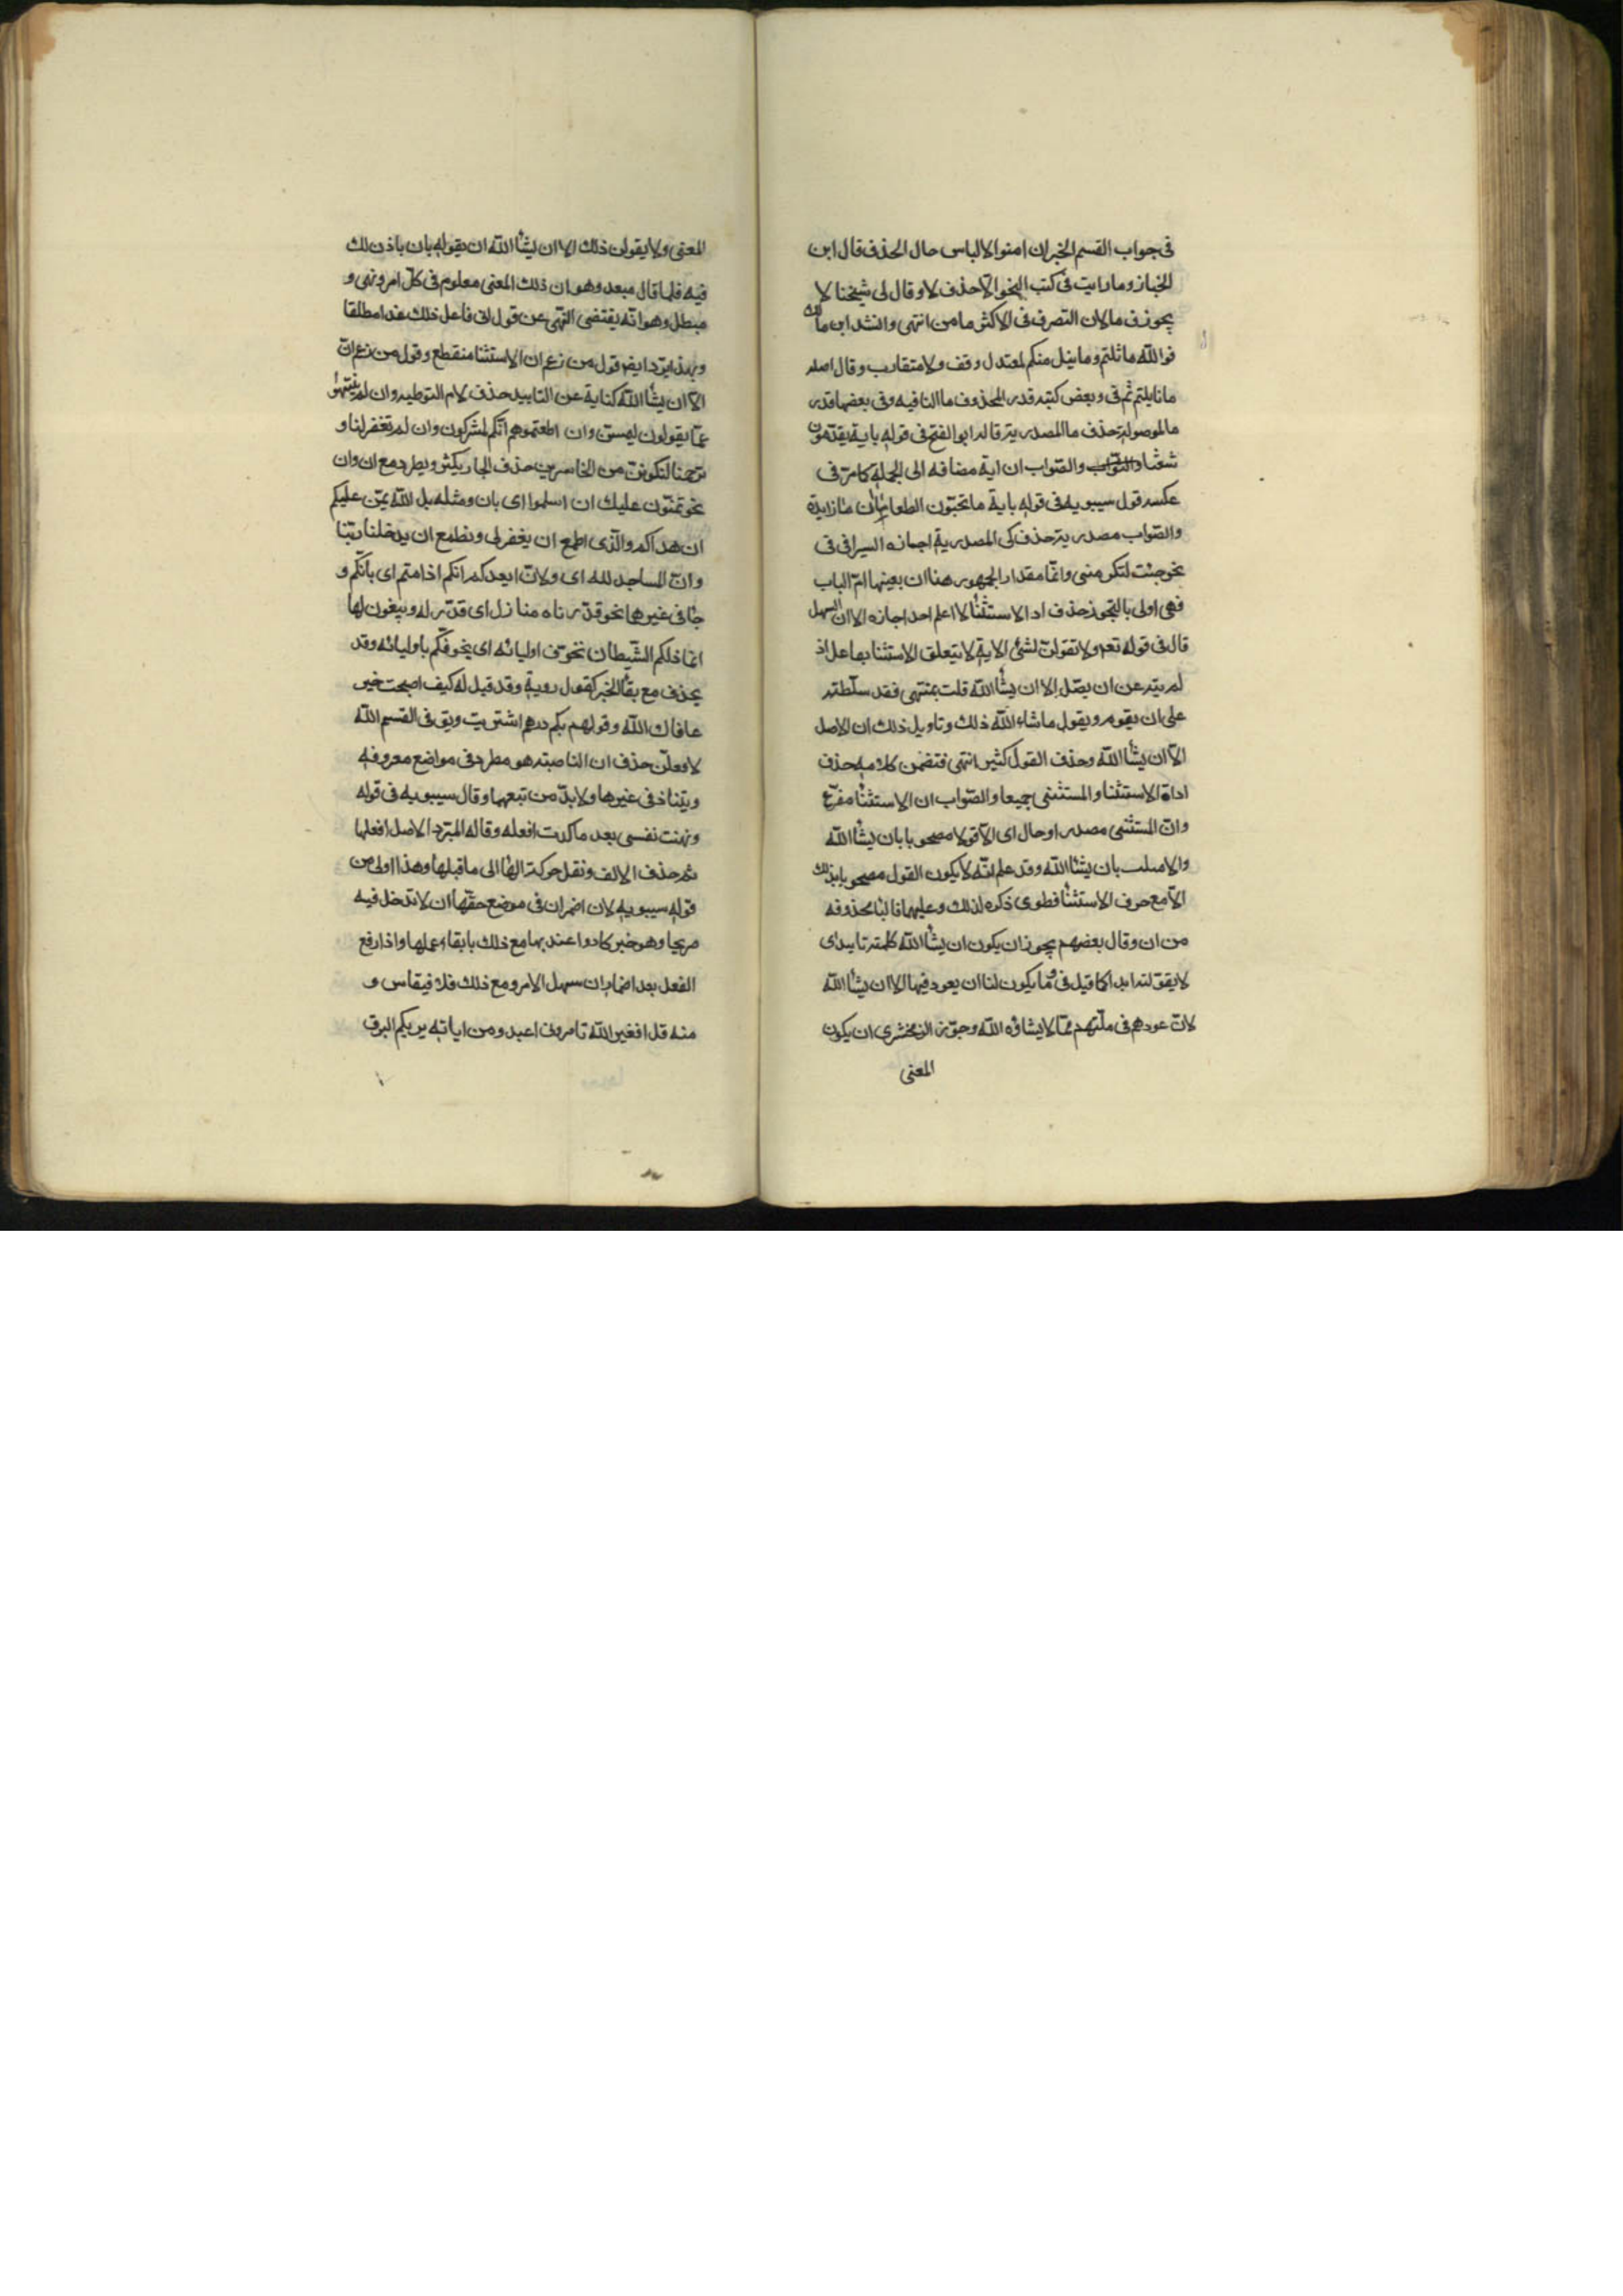 فى جواب القسم الخبر ان امنوا الالباس حال الحذف قال ابن
الخباز وما رايت فى كتب النحو الا حذف لا وقال لى شيخنا لا
يجوز ف ما لان التصرف فى لا اكثر ما من انتهى وانشد ابن مالك
فوالله ما نلتم وما نيل منكم لمعتدل وقف ولا متقارب وقال اصله
ما نا يلتم ثم فى وبعض كتبه قدر المحذوف ما النافيه وفى بعضها قدر
ما الموصوله حذف ما المصدريه قاله ابو الفتح فى قوله باية يقدمون
شعثا والصواب ان اية مضافه الى الجمله كما مر فى
عكسه قول سيبويه فى قوله باية ما تحبون الطعاما ان ما زايدة
والصواب مصدريه حذف كى المصدرية اجازه السيرافى فى
نحو جئت لتكرمنى وانما مقدار الجمهور هنا ان بعينها ام الباب
فهى اولى بالتجوز حذف اد الاستثنا لا اعلم احدا اجازه الا ان السهيل
قال فى قوله تعم ولا تقولن لشئ الاية لا يتعلق الاستثنا بفاعل اذ
لم ينه عن ان يصل الا ان يشأ الله قلت بمنتهى فقد سلطته
على ان يقوم ويقول ما شاء الله ذلك وتاويل ذلك ان الاصل
الا ان يشأ الله وحذف القول كثير انتهى فتضمن كلامه حذف
اداة الاستثنا والمستثنى جميعا والصواب ان الاستثنا مفرغ
وان المستثنى مصدر او حال اى الا قولا مصحوبا بان يشأ الله
والا متلبسا بان يشأ الله وقد علم انه لا يكون القول مصحوبا بذلك
الا مع حرف الاستثنا فطوى ذكره لذلك وعليهما فالبا محذوفه
من ان وقال بعضهم يجوز ان يكون ان يشأ الله كلمة تابيد اى
لا يقولنه ابدا كما قيل فى وما يكون لنا ان يعود فيها الا ان يشأ الله
لان عودهم فى ملتهم مما لا يشاؤه الله وجوز الزمخشرى ان يكون
المعنى
المعنى ولا يقولن ذلك الا ان يشأ الله ان يقوله بان ياذن لك
فيه فلما قال مبعد وهو ان ذلك المعنى معلوم فى كل امر ونهى و
مبطل وهو انه يقتضى النهى عن قول انى فاعل ذلك غدا مطلقا
وبهذا يرد ايض قول من زعم ان الاستثنا منقطع وقول من زعم ان
الا ان يشأ الله كناية عن التابيد حذف لام التوطيه وان لم ينتهوا
عما يقولون ليمسن وان اطعتموهم انكم لمشركون وان لم تغفر لنا و
ترحمنا لنكونن من الخاسرين حذف الجار يكثر ويطرد مع ان وان
نحو يمنون عليك ان اسلموا اى بان ومثله بل الله يمن عليكم
ان هداكم والذى اطمع ان يغفر لى ونطمع ان يدخلنا ربنا
وان المساجد لله اى ولان ايعدكم انكم اذا متم اى بانكم و
جا فى غيرها نحو قدرناه منازل اى قدر له ويبغون لها
انما ذلكم الشيطان يخوف اوليائه اى يخوفكم باوليائه وقد
يحذف مع بقا الخبر كقول روية وقد قيل له كيف اصبحت خير
عافاك الله وقولهم بكم درهم اشتريت ويق فى القسم الله
لافعلن حذف ان الناصبته هو مطرد فى مواضع معروفه
ويتناذ فى غيرها ولا بد من تبعها وقال سيبويه فى قوله
ونهنت نفسى بعد ما كدت افعله وقاله المبرد الاصل افعلها
ثم حذف الالف ونقل حركة الها الى ما قبلها وهذا اولى من
قوله سيبويه لان اضمر ان فى موضع حقها ان لا تدخل فيه
صريحا وهو خبر كاد واعتد بها مع ذلك بابقاء عملها واذا رفع
الفعل بعد اضمار ان سهل الامر ومع ذلك فلا فيقاس و
منه قل افغير الله تامرونى اعبد ومن اياته يريكم البرق